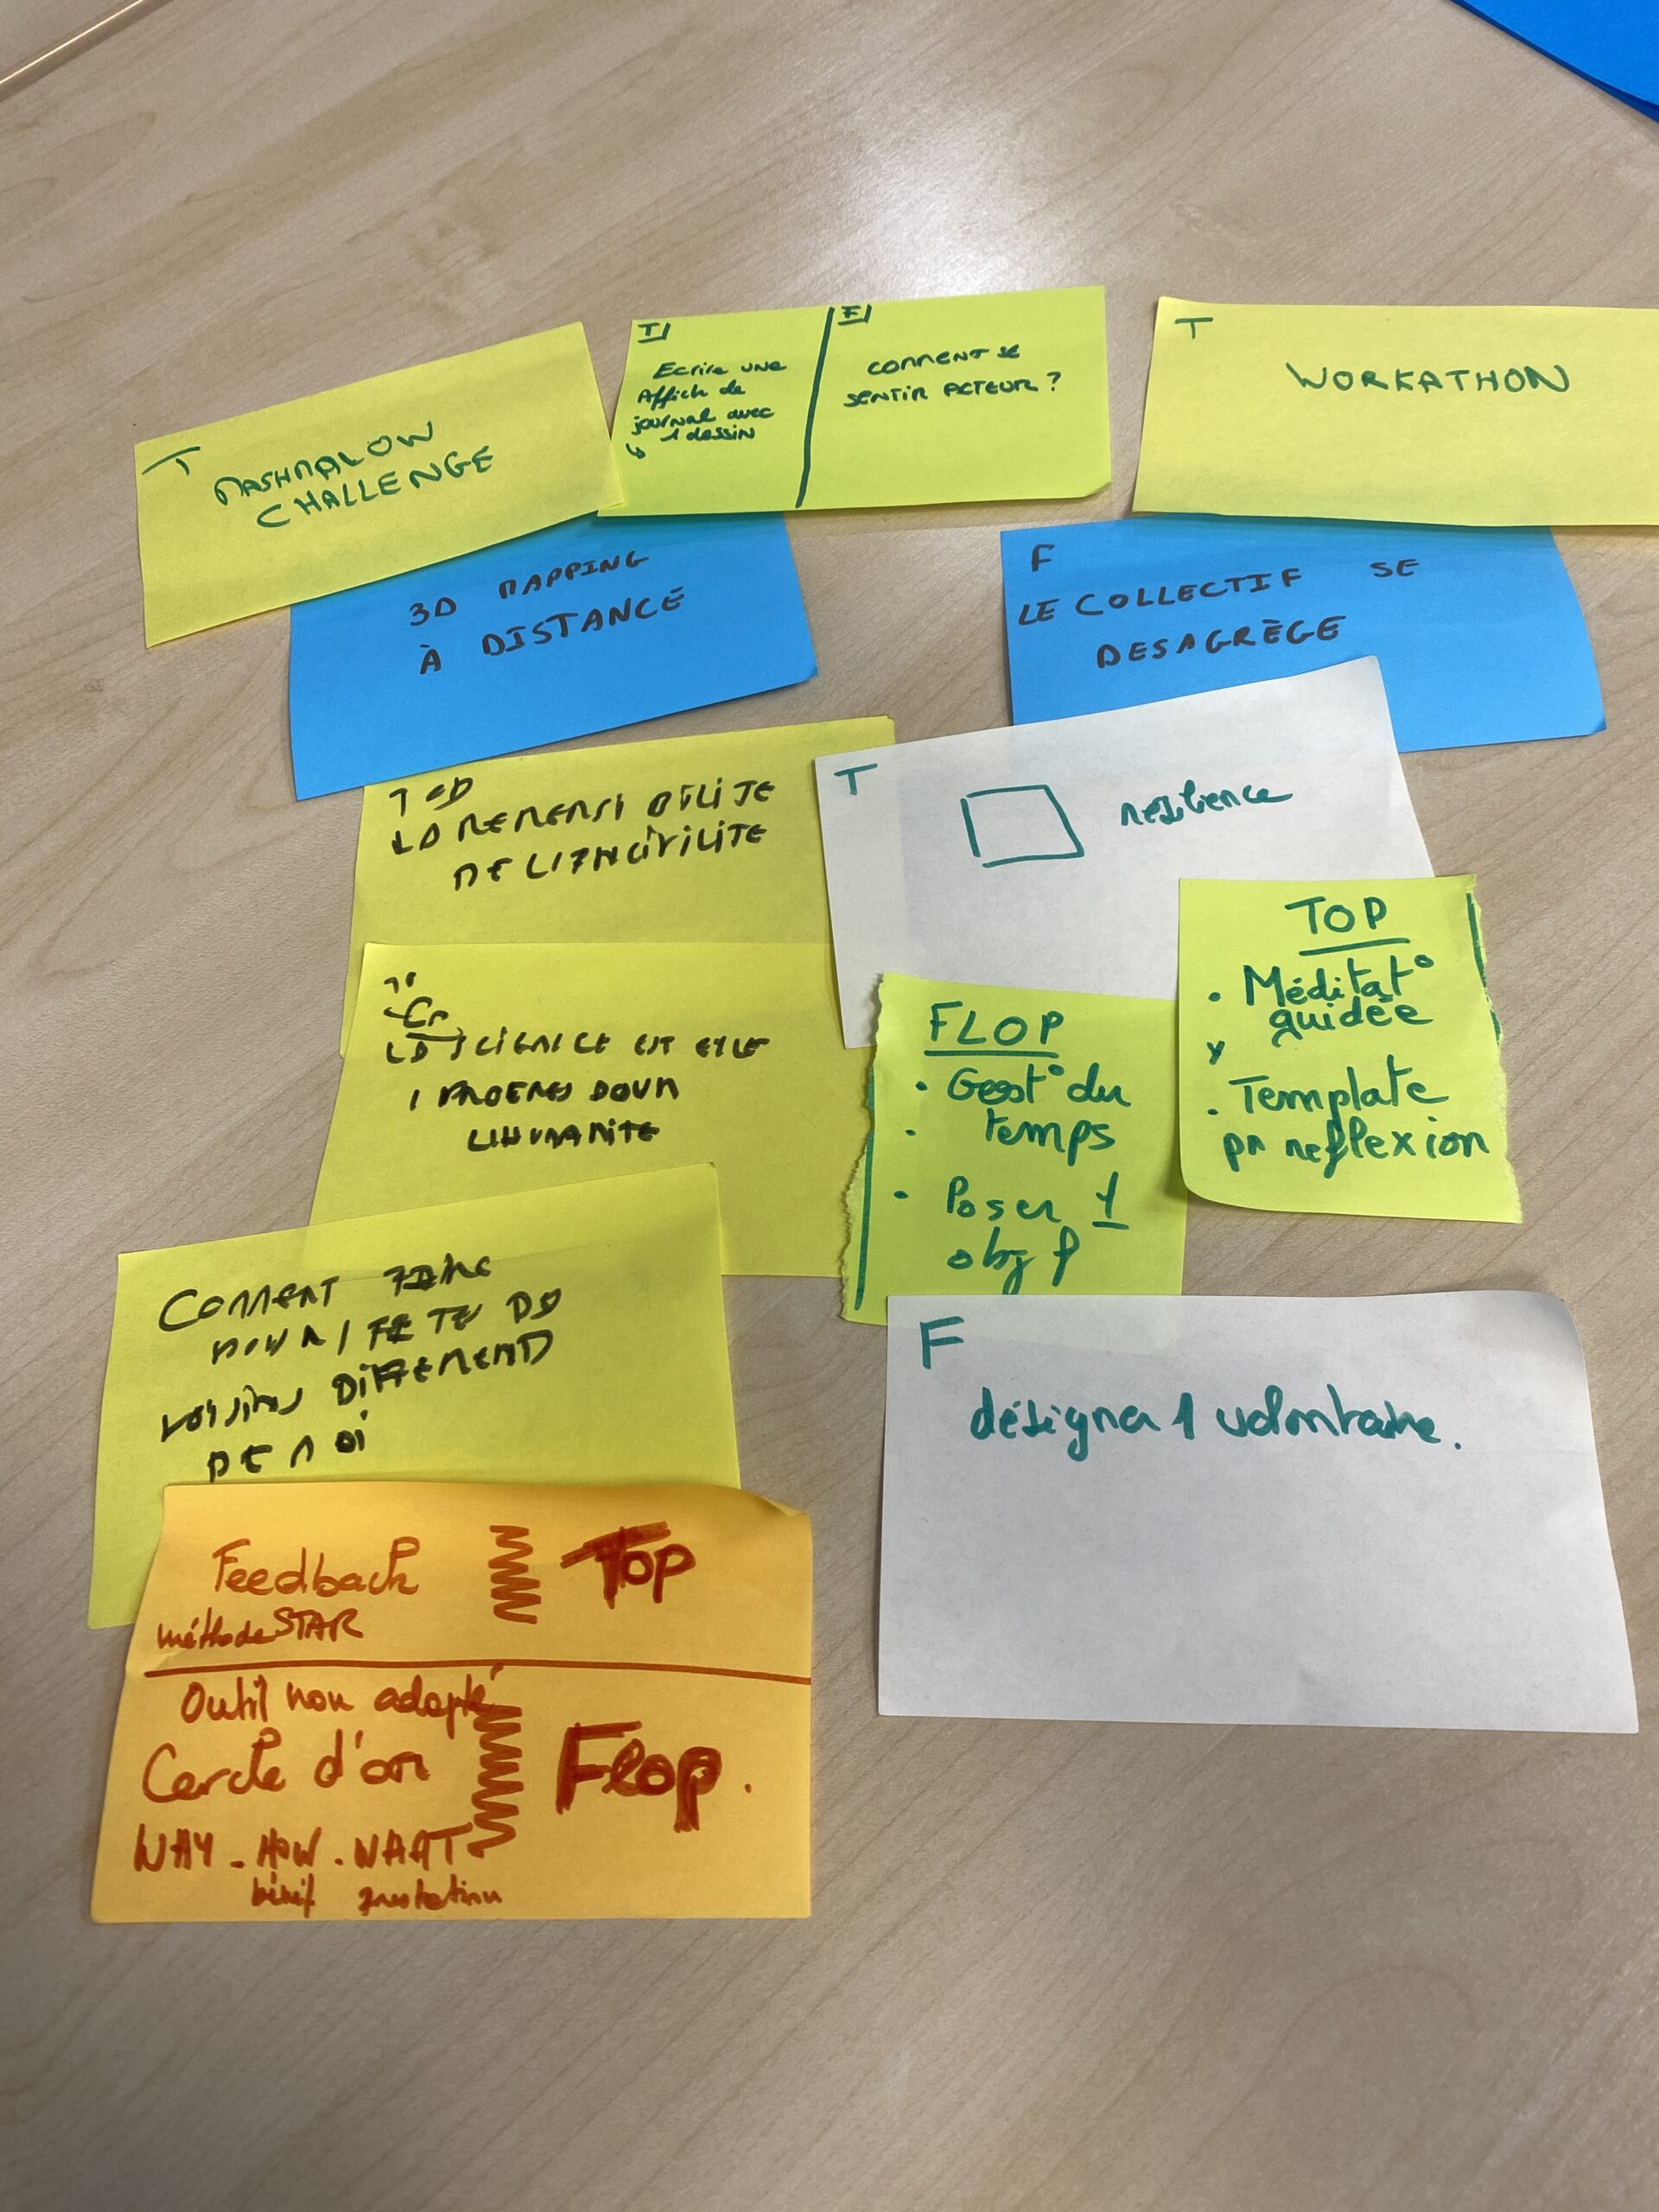 T
MASHMALOW
CHALLENGE
T
Ecrire une
Affiche de
journal avec
1 dessin
F
COMMENT SE
SENTIR ACTEUR ?
T
WORKATHON
3D MAPPING
À DISTANCE
F
LE COLLECTIF SE
DESAGRÈGE
T
résilience
DE
TOP
• Méditat°
guidée
• Template
pr reflexion
EST
LHUMANITE
FLOP
• Gest° du
temps
• Poser 1
obj f
COMMENT FAIRE
DIFFERENTS
DE MOI
F
désigner 1 volontaire.
Feedback Top
méthode STAR
Outil non adapté
Cercle d'or Flop.
WHY - HOW - WHAT
bénéf prestation